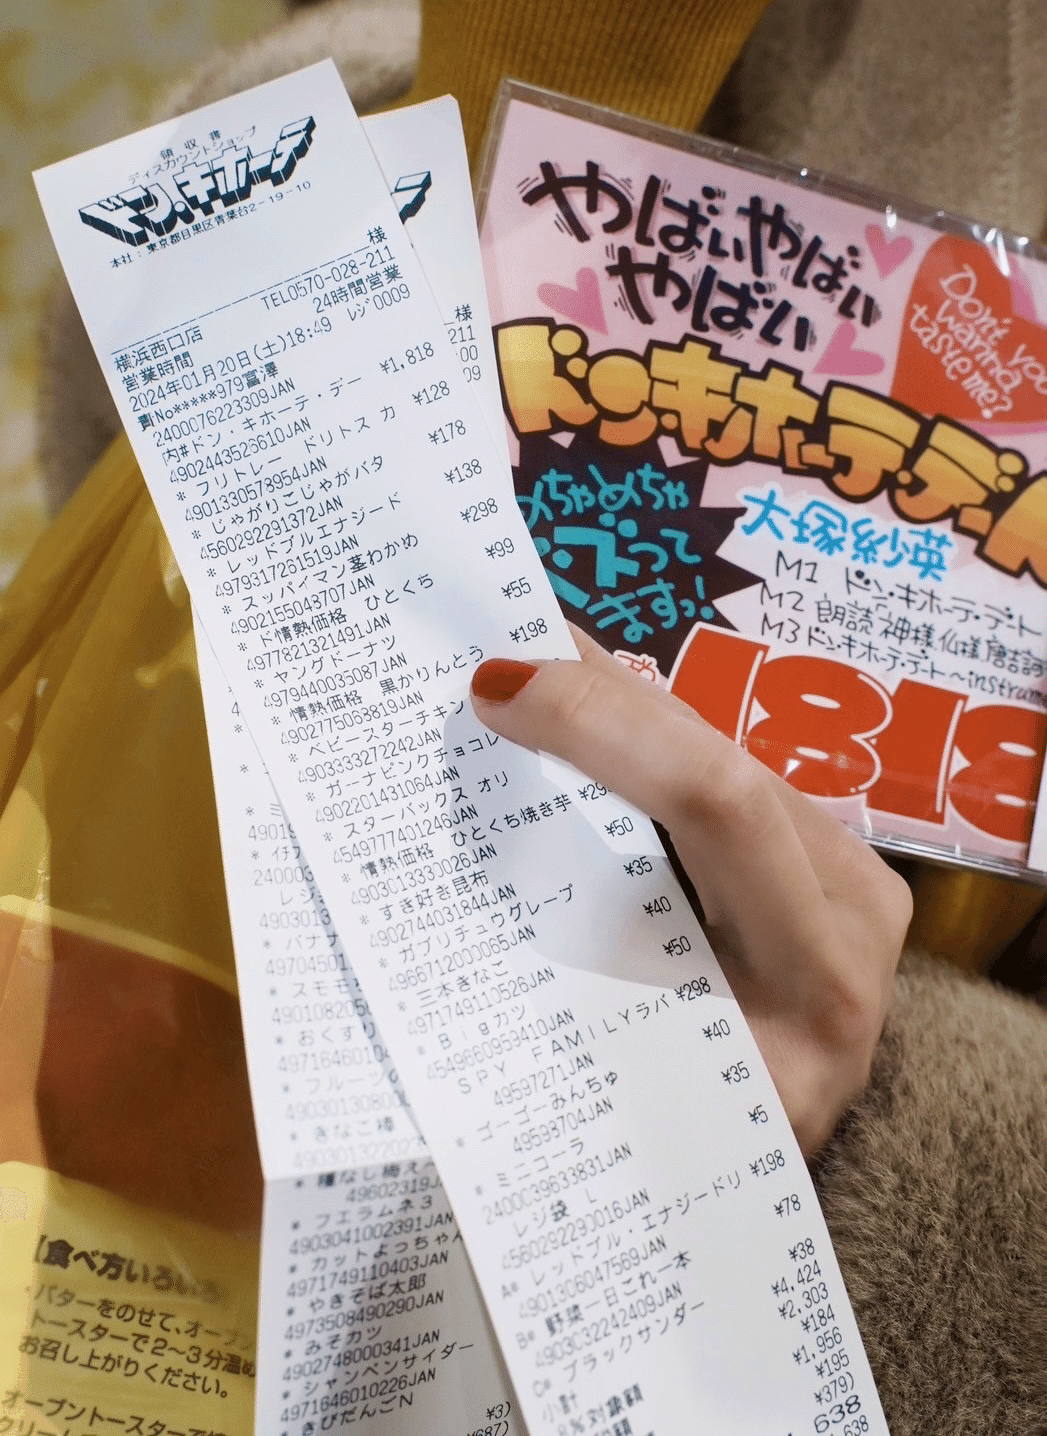 領収書
ディスカウントショップ
ドン・キホーテ
本社：東京都目黒区青葉台2-19-10
様
TEL0570-028-211
横浜西口店 24時間営業
営業時間
2024年01月20日(土)18:49 レジ0009
責No*****979富澤
2400076223309JAN
内#ドン・キホーテ・デー ¥1,818
4902443526610JAN
* フリトレー ドリトス カ ¥128
4901330578954JAN
* じゃがりこじゃがバタ ¥178
4560292291372JAN
* レッドブルエナジード ¥138
4979317261519JAN
* スッパイマン茎わかめ ¥298
4902155043707JAN
ド情熱価格 ひとくち ¥99
4977821321491JAN
* ヤングドーナツ ¥55
4979440035087JAN
* 情熱価格 黒かりんとう ¥198
4902775063819JAN
ベビースターチキン
4903333272242JAN
* ガーナピンクチョコレ
4902201431064JAN
* スターバックス オリ
4549777401246JAN
* 情熱価格 ひとくち焼き芋
4903013330026JAN
* すき好き昆布 ¥50
4902744031844JAN
* ガブリチュウグレープ ¥35
4966712000065JAN
* 三本きなこ ¥40
4971749110526JAN
* Bigカツ ¥50
4549660959410JAN
SPY FAMILYラバ ¥298
49597271JAN
* ゴーゴーみんちゅ ¥40
49593704JAN
* ミニコーラ ¥35
2400039633831JAN
レジ袋 L ¥5
4560292290016JAN
A* レッドブル・エナジードリ ¥198
4901306047569JAN
B* 野菜一日これ一本 ¥78
4903032242409JAN
C* ブラックサンダー ¥38
小計 ¥4,424
8%対象額 ¥2,303
¥184
¥1,956
¥195
¥379)
638
様
211
* バナナ
* スモモ
* おくすり
* フルーツの
* きなこ棒
* 種なし梅
49602319
* フエラムネ3
4903041002391JAN
* カットよっちゃん
4971749110403JAN
* やきそば太郎
4973508490290JAN
* みそカツ
4902748000341JAN
* シャンペンサイダー
4971646010226JAN
* きびだんごN
¥3)
やばぃやばい
やばい
Don't you
wanna
taste me?
ドン・キホーテ・デ
めちゃめちゃ
ますっ!
大塚紗英
M1 ドン・キホーテ・デート
M2 朗読 神様仏様
M3 ドン・キホーテ・デート〜instrume
1818
【食べ方いろいろ
・バターをのせて、オーブ
トースターで2〜3分温め
お召し上がりください。
オーブントースターで